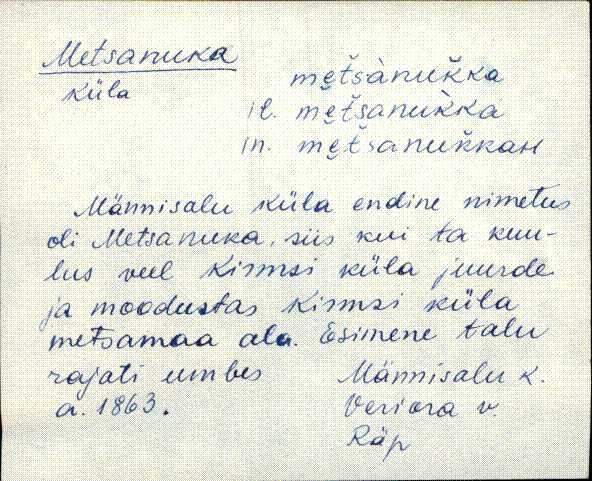 Metsanuka
küla
me̮tšànuk̆ka
il. me̮tšanuk̀ka
in. me̮tšanuk̆kaH
Männisalu küla endine nimetus
oli Metsanuka, siis kui ta kuu-
lus veel Kirmsi küla juurde
ja moodustas Kirmsi küla
metsamaa ala. Esimene talu
rajati umbes
a. 1863.
Männisalu k.
Veriora v.
Räp